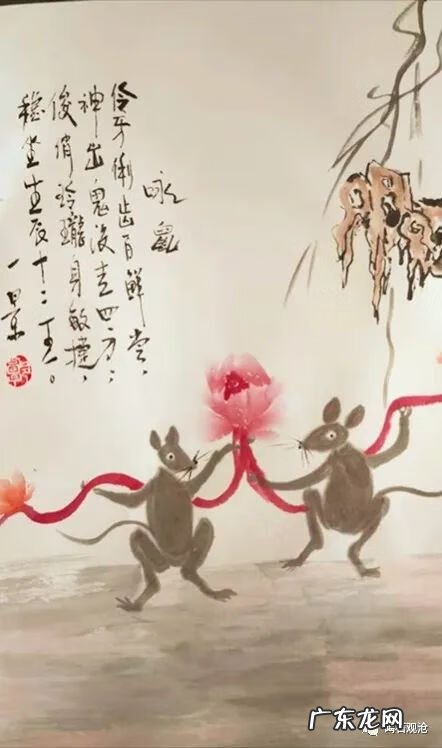 咏鼠
伶牙俐齿百鲜尝，
神出鬼没走四方；
俊俏玲瓏身敏捷，
稳坐生辰十二王。
一景
观沧
广东龙网